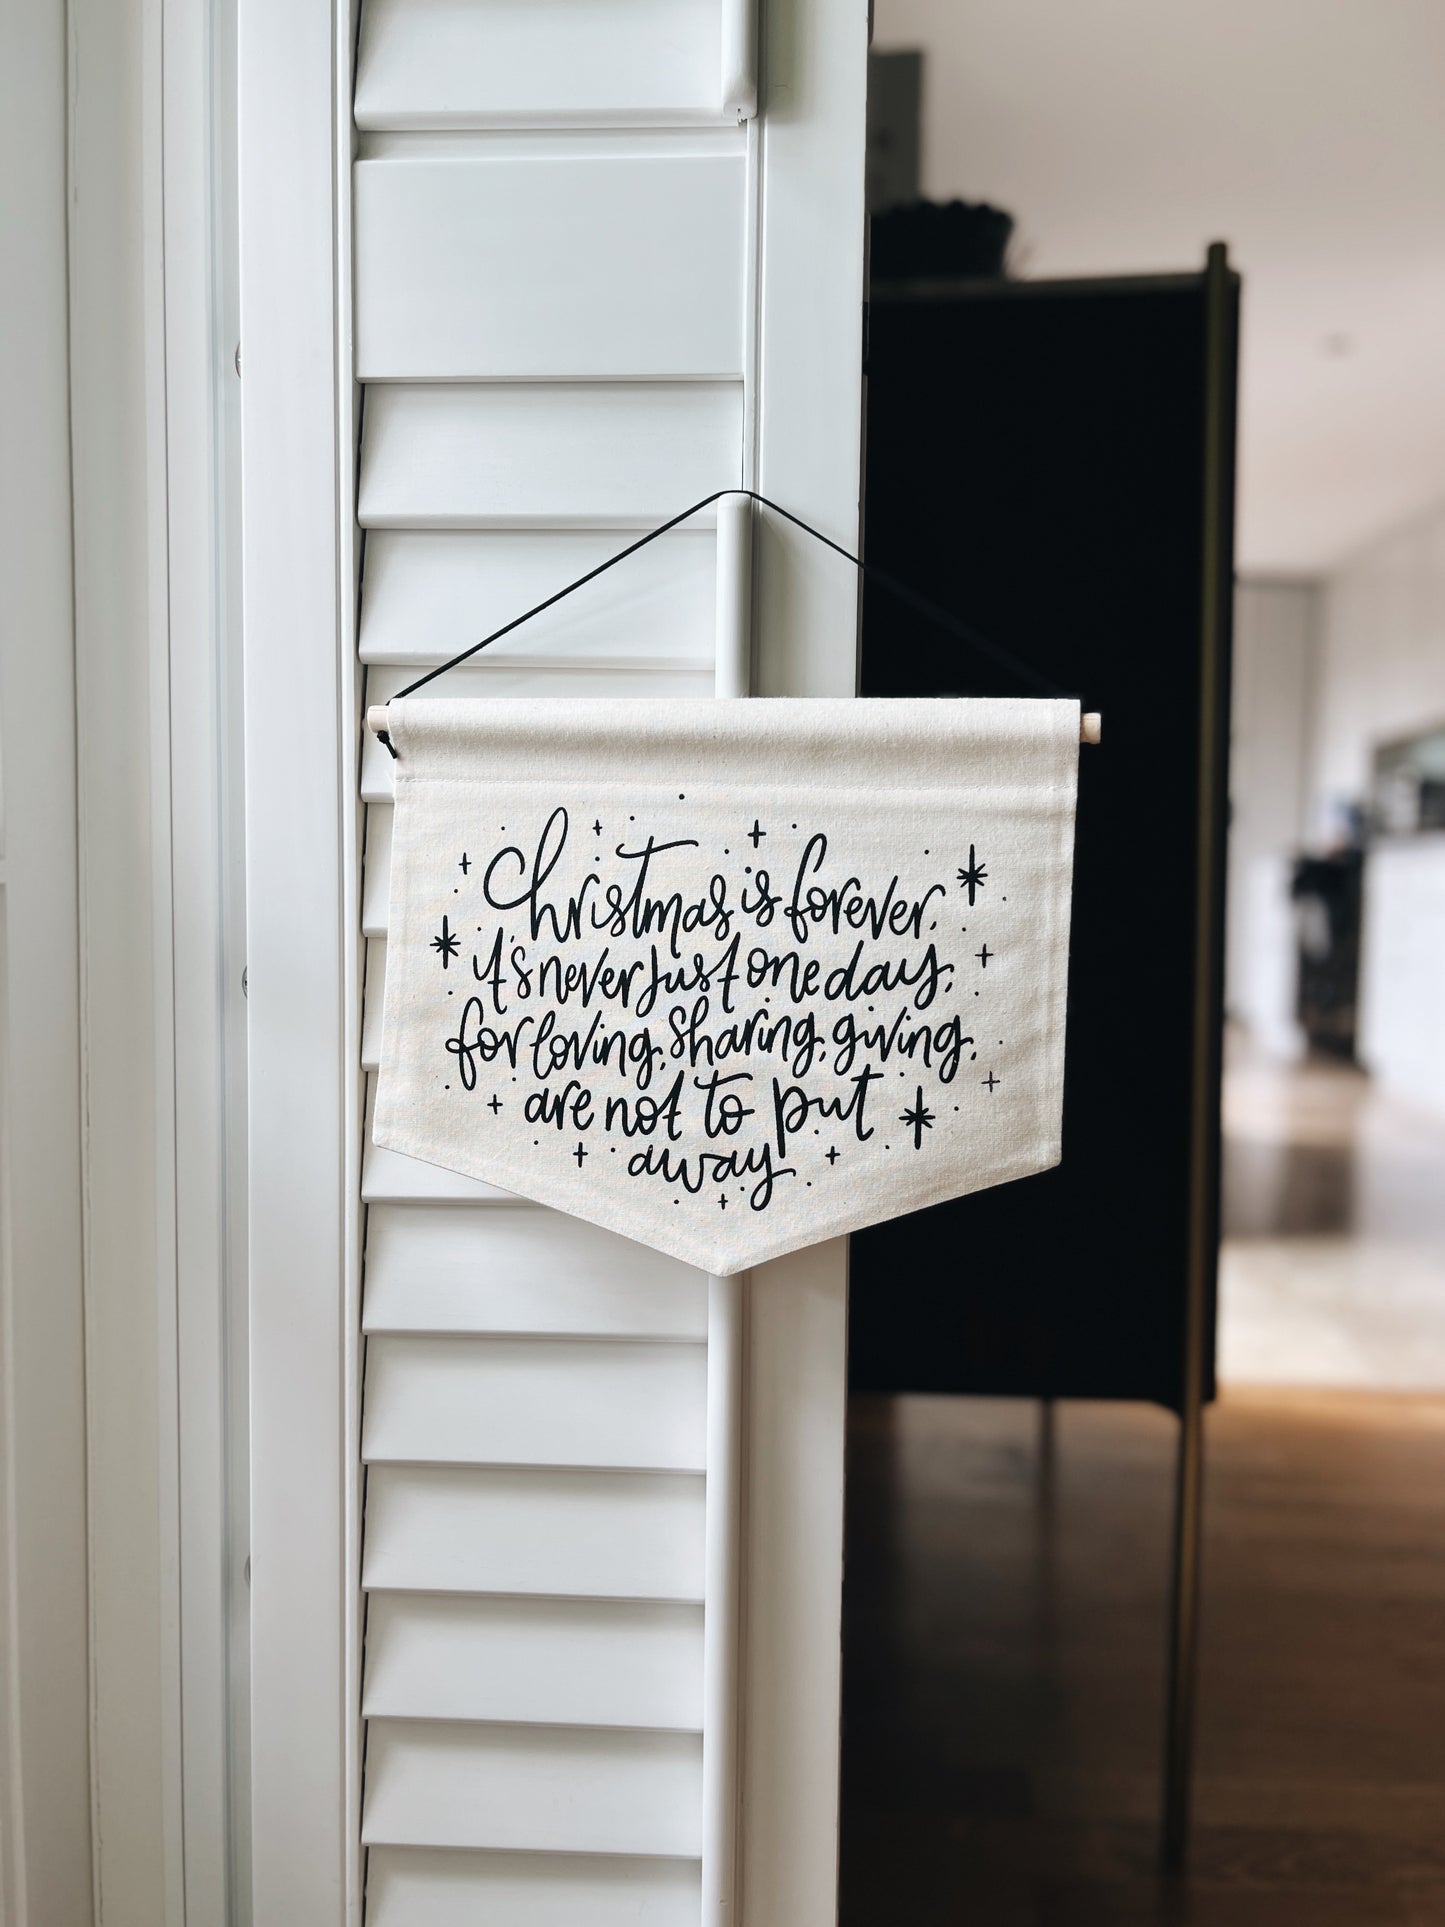 Christmas is forever,
it's never just one day,
for loving, sharing, giving,
are not to put
away